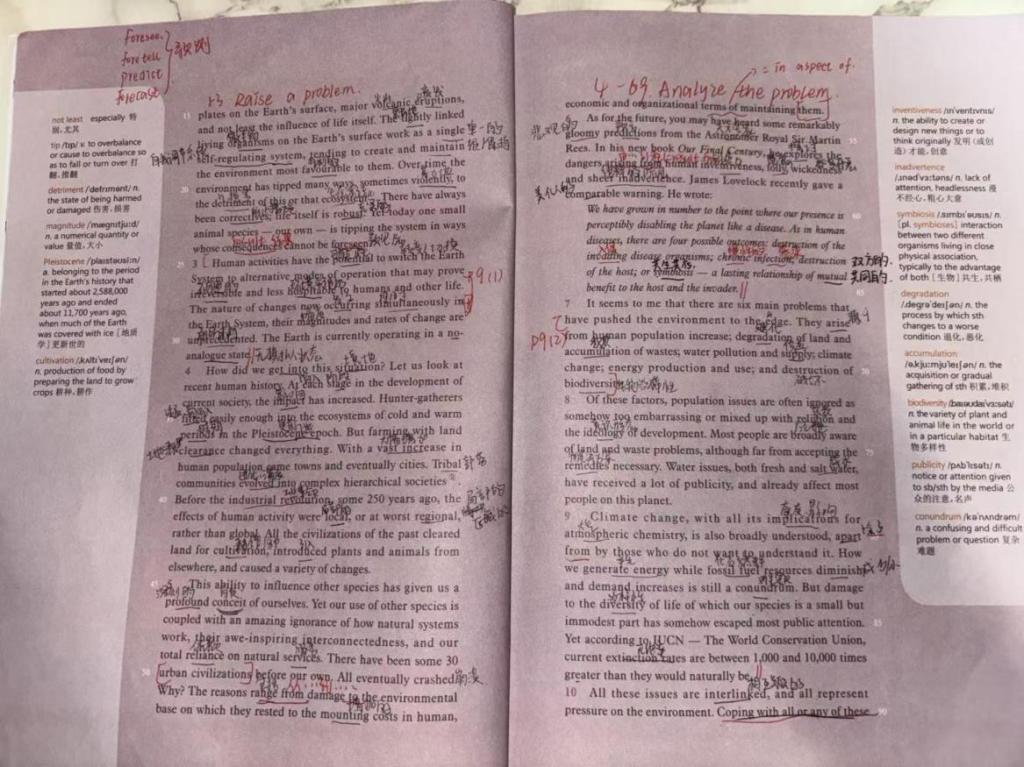 foresee.
foretell
predict
forecast
预测
1-3 Raise a problem.
not least especially 特
别,尤其
tip /tɪp/ v. to overbalance
or cause to overbalance so
as to fall or turn over 打
翻,推翻
detriment /ˈdetrɪmənt/ n.
the state of being harmed
or damaged 伤害,损害
magnitude /ˈmæɡnɪtjuːd/
n. a numerical quantity or
value 量值,大小
Pleistocene /ˈplaɪstəʊsiːn/
a. belonging to the period
in the Earth's history that
started about 2,588,000
years ago and ended
about 11,700 years ago,
when much of the Earth
was covered with ice [地质
学] 更新世的
cultivation /ˌkʌltɪˈveɪʃən/
n. production of food by
preparing the land to grow
crops 耕种,耕作
plates on the Earth's surface, major volcanic eruptions,
and not least the influence of life itself. The tightly linked
living organisms on the Earth's surface work as a single
self-regulating system, tending to create and maintain
the environment most favourable to them. Over time the
environment has tipped many ways, sometimes violently, to
the detriment of this or that ecosystem. There have always
been correctives; life itself is robust. Yet today one small
animal species — our own — is tipping the system in ways
whose consequences cannot be foreseen.
3 Human activities have the potential to switch the Earth
System to alternative modes of operation that may prove
irreversible and less hospitable to humans and other life.
The nature of changes now occurring simultaneously in
the Earth System, their magnitudes and rates of change are
unprecedented. The Earth is currently operating in a no-
analogue state.
P9 (1)
4 How did we get into this situation? Let us look at
recent human history. At each stage in the development of
current society, the impact has increased. Hunter-gatherers
fitted easily enough into the ecosystems of cold and warm
periods in the Pleistocene epoch. But farming with land
clearance changed everything. With a vast increase in
human population came towns and eventually cities. Tribal
communities evolved into complex hierarchical societies
40 Before the industrial revolution, some 250 years ago, the
effects of human activity were local, or at worst regional,
rather than global. All the civilizations of the past cleared
land for cultivation, introduced plants and animals from
elsewhere, and caused a variety of changes.
5 This ability to influence other species has given us a
profound conceit of ourselves. Yet our use of other species is
coupled with an amazing ignorance of how natural systems
work, their awe-inspiring interconnectedness, and our
total reliance on natural services. There have been some 30
urban civilizations before our own. All eventually crashed.
Why? The reasons range from damage to the environmental
base on which they rested to the mounting costs in human,
4-69. Analyze the problem.
= in aspect of.
economic and organizational terms of maintaining them.
6 As for the future, you may have heard some remarkably
gloomy predictions from the Astronomer Royal Sir Martin
Rees. In his new book Our Final Century, he explores the
dangers arising from human inventiveness, folly, wickedness
and sheer inadvertence. James Lovelock recently gave a
comparable warning. He wrote:
We have grown in number to the point where our presence is
perceptibly disabling the planet like a disease. As in human
diseases, there are four possible outcomes: destruction of the
invading disease organisms; chronic infection; destruction
of the host; or symbiosis — a lasting relationship of mutual
benefit to the host and the invader.
7 It seems to me that there are six main problems that
have pushed the environment to the edge. They arise
P9 (2)
from human population increase; degradation of land and
accumulation of wastes; water pollution and supply; climate
change; energy production and use; and destruction of
biodiversity.
8 Of these factors, population issues are often ignored as
somehow too embarrassing or mixed up with religion and
the ideology of development. Most people are broadly aware
of land and waste problems, although far from accepting the
remedies necessary. Water issues, both fresh and salt water,
have received a lot of publicity, and already affect most
people on this planet.
9 Climate change, with all its implications for
atmospheric chemistry, is also broadly understood, apart
from by those who do not want to understand it. How
we generate energy while fossil fuel resources diminish
and demand increases is still a conundrum. But damage
to the diversity of life of which our species is a small but
immodest part has somehow escaped most public attention.
Yet according to IUCN — The World Conservation Union,
current extinction rates are between 1,000 and 10,000 times
greater than they would naturally be.
10 All these issues are interlinked, and all represent
pressure on the environment. Coping with all or any of these 90
inventiveness /ɪnˈventɪvnɪs/
n. the ability to create or
design new things or to
think originally 发明 (或创
造) 才能,创意
inadvertence
/ˌɪnədˈvɜːtəns/ n. lack of
attention, headlessness 漫
不经心,粗心大意
symbiosis /ˌsɪmbɪˈəʊsɪs/ n.
[pl. symbioses] interaction
between two different
organisms living in close
physical association,
typically to the advantage
of both [生物] 共生,共栖
degradation
/ˌdeɡrəˈdeɪʃən/ n. the
process by which sth
changes to a worse
condition 退化,恶化
accumulation
/əˌkjuːmjʊˈleɪʃən/ n. the
acquisition or gradual
gathering of sth 积累,堆积
biodiversity /ˌbaɪəʊdaɪˈvɜːsətɪ/
n. the variety of plant and
animal life in the world or
in a particular habitat 生
物多样性
publicity /pʌbˈlɪsətɪ/ n.
notice or attention given
to sb/sth by the media 公
众的注意,名声
conundrum /kəˈnʌndrəm/
n. a confusing and difficult
problem or question 复杂
难题